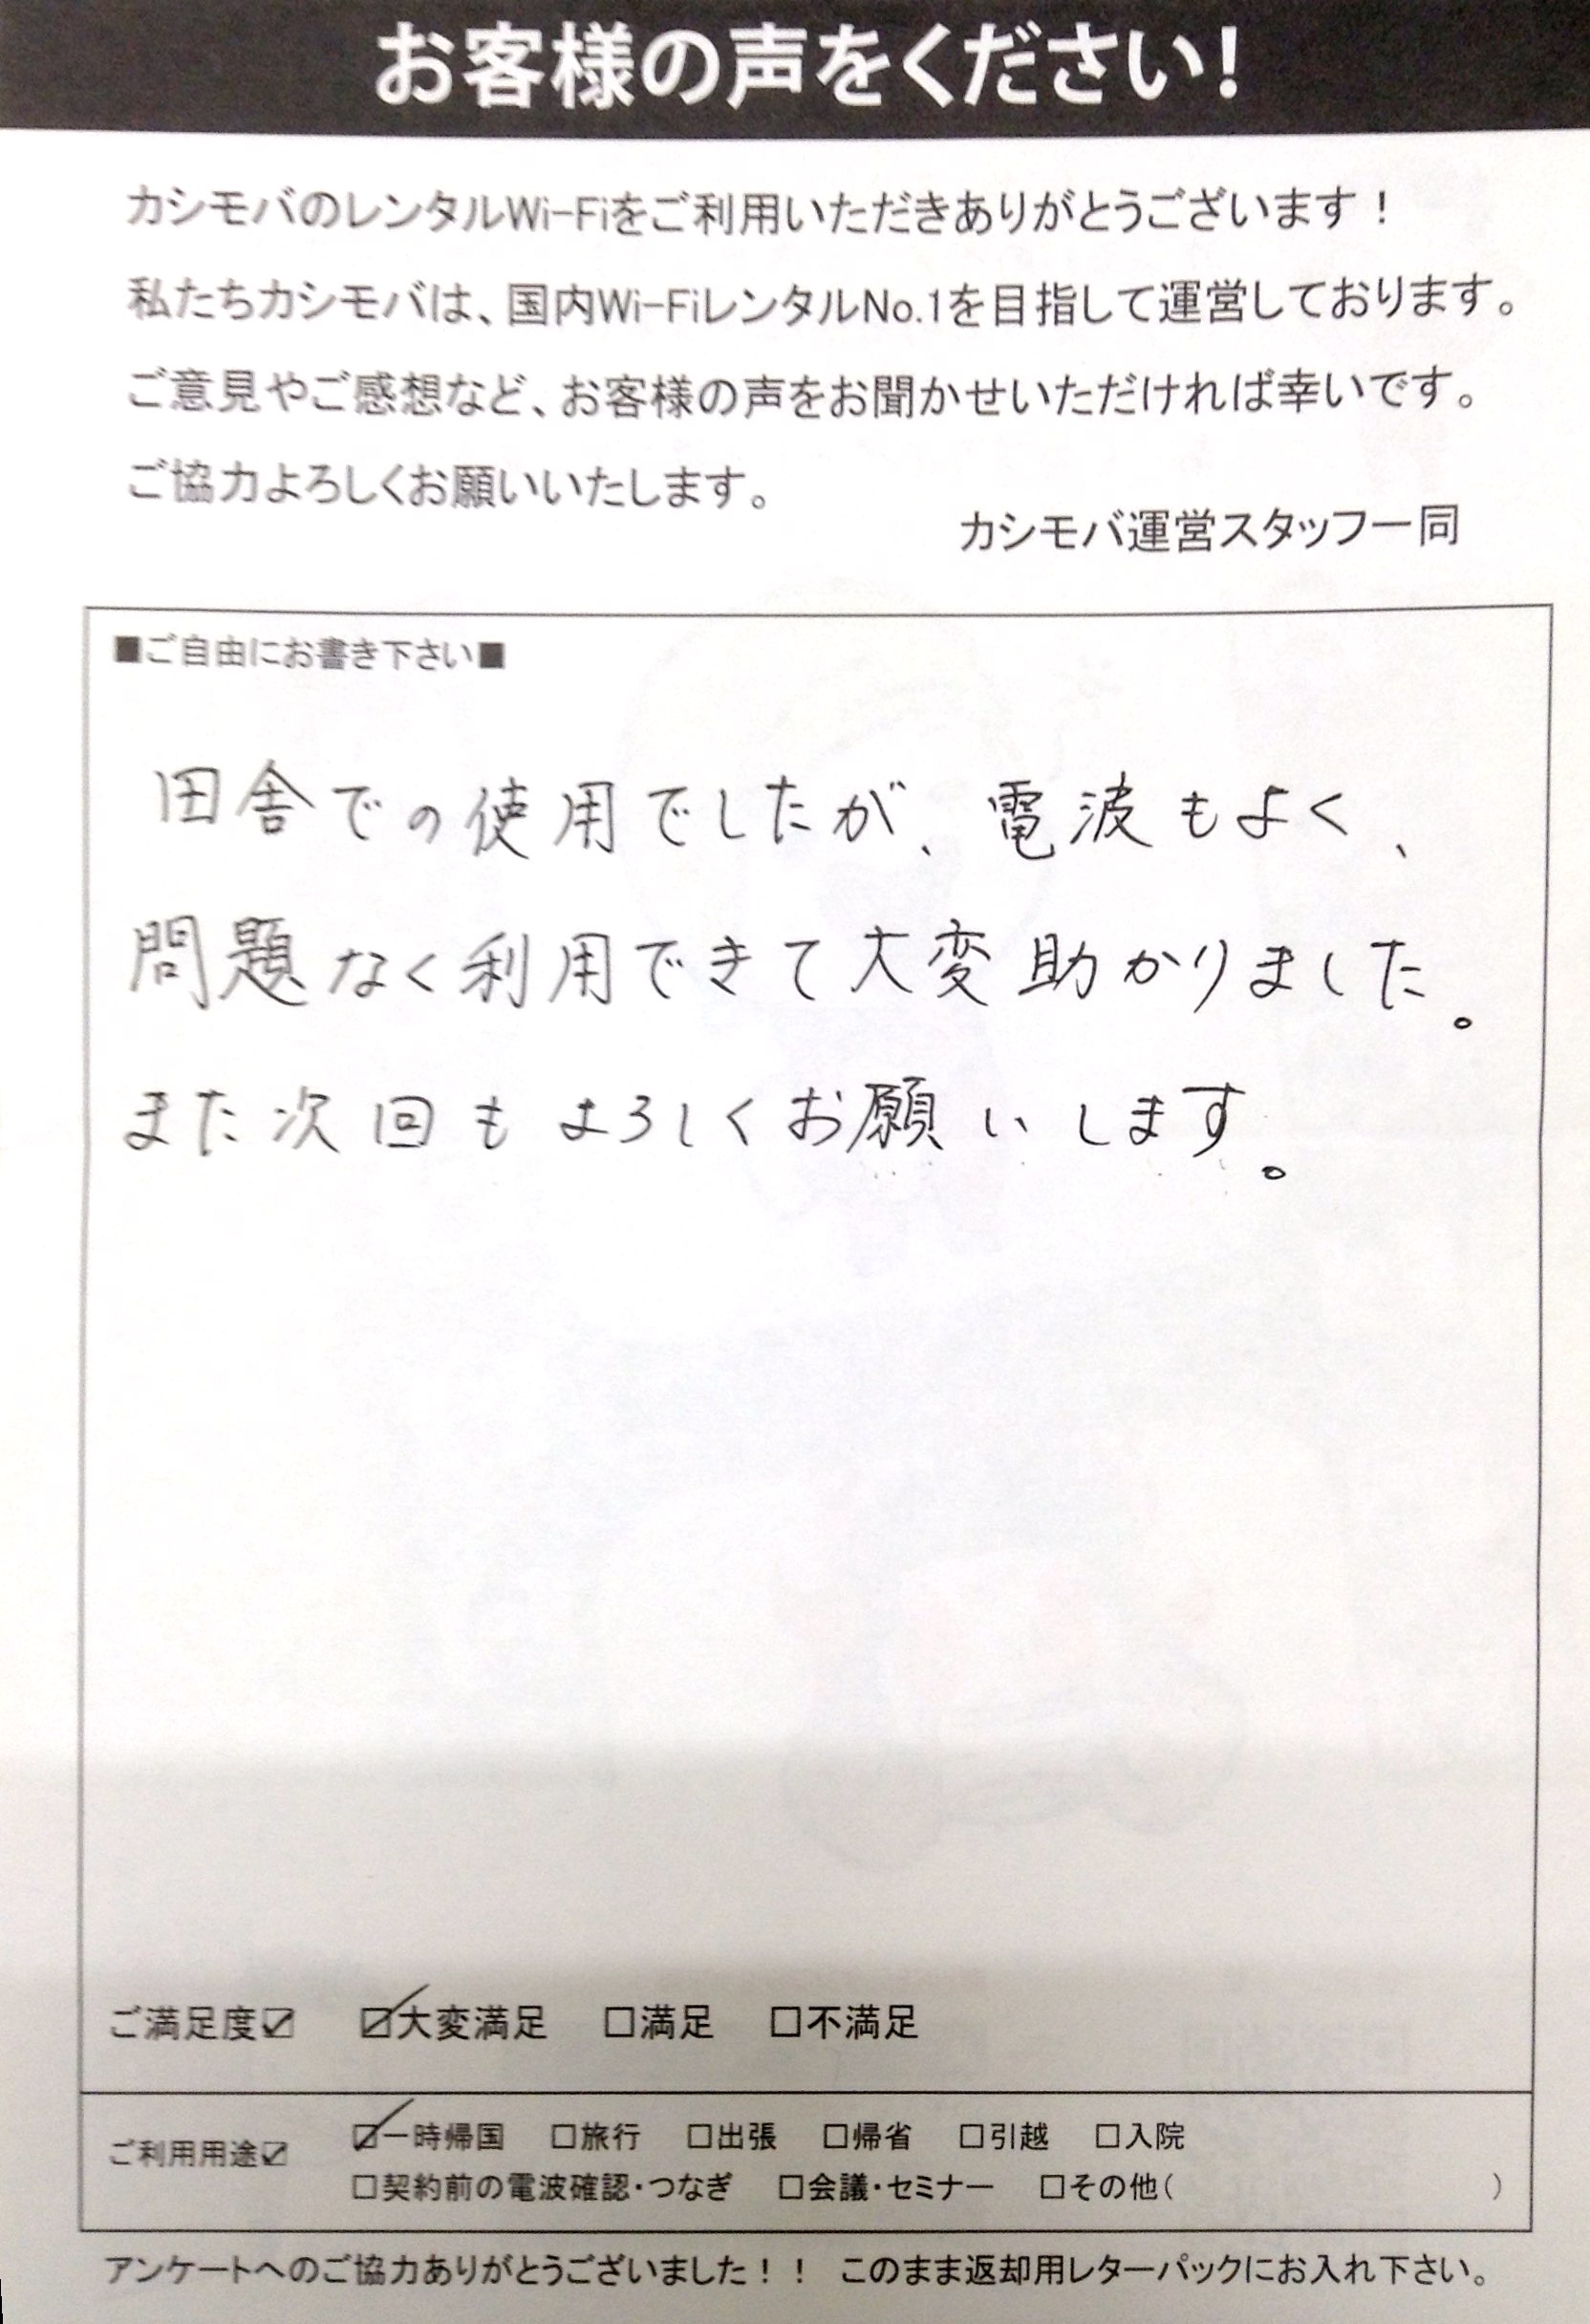 お客様の声をください!
カシモバのレンタルWi-Fiをご利用いただきありがとうございます！
私たちカシモバは、国内Wi-FiレンタルNo.1を目指して運営しております。
ご意見やご感想など、お客様の声をお聞かせいただければ幸いです。
ご協力よろしくお願いいたします。
カシモバ運営スタッフ一同
■ご自由にお書き下さい■
田舎での使用でしたが、電波もよく、
問題なく利用できて大変助かりました。
また次回もよろしくお願いします。
ご満足度☑ ☑大変満足 □満足 □不満足
ご利用用途☑ ☑一時帰国 □旅行 □出張 □帰省 □引越 □入院
□契約前の電波確認・つなぎ □会議・セミナー □その他( )
アンケートへのご協力ありがとうございました！！ このまま返却用レターパックにお入れ下さい。